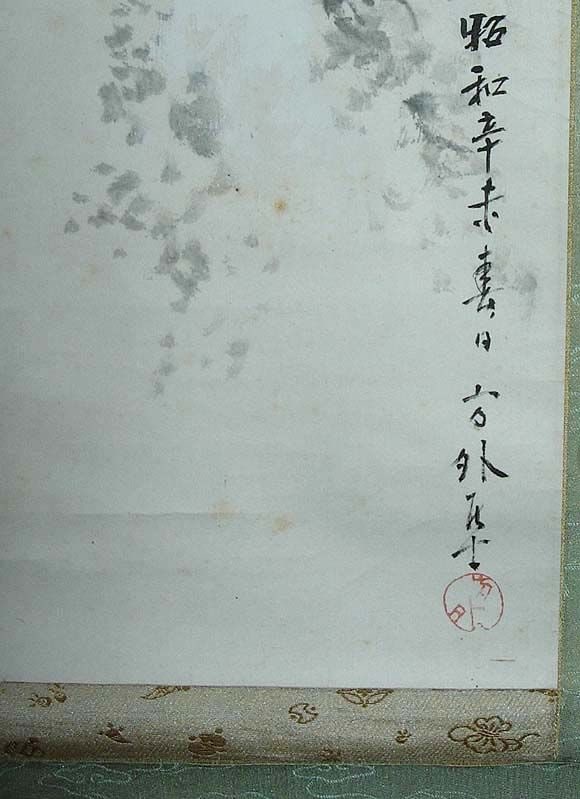 昭和辛未春日 方外居士
方外